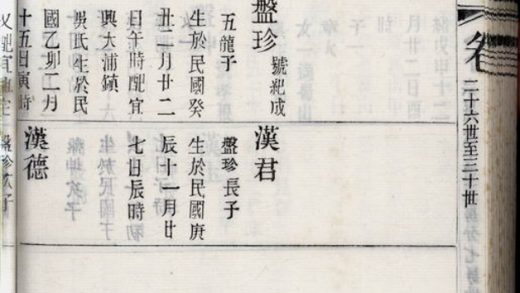 卷
二十六世至三十世
盤珍 號紀成
五龍子
生於民國癸
丑 月廿二
日午時配宜
興大浦鎮
吳氏生於民
國乙卯二月
十五日寅時
又配宜
漢君
盤珍長子
生於民國庚
辰十一月廿
七日辰時
漢德
盤珍次子